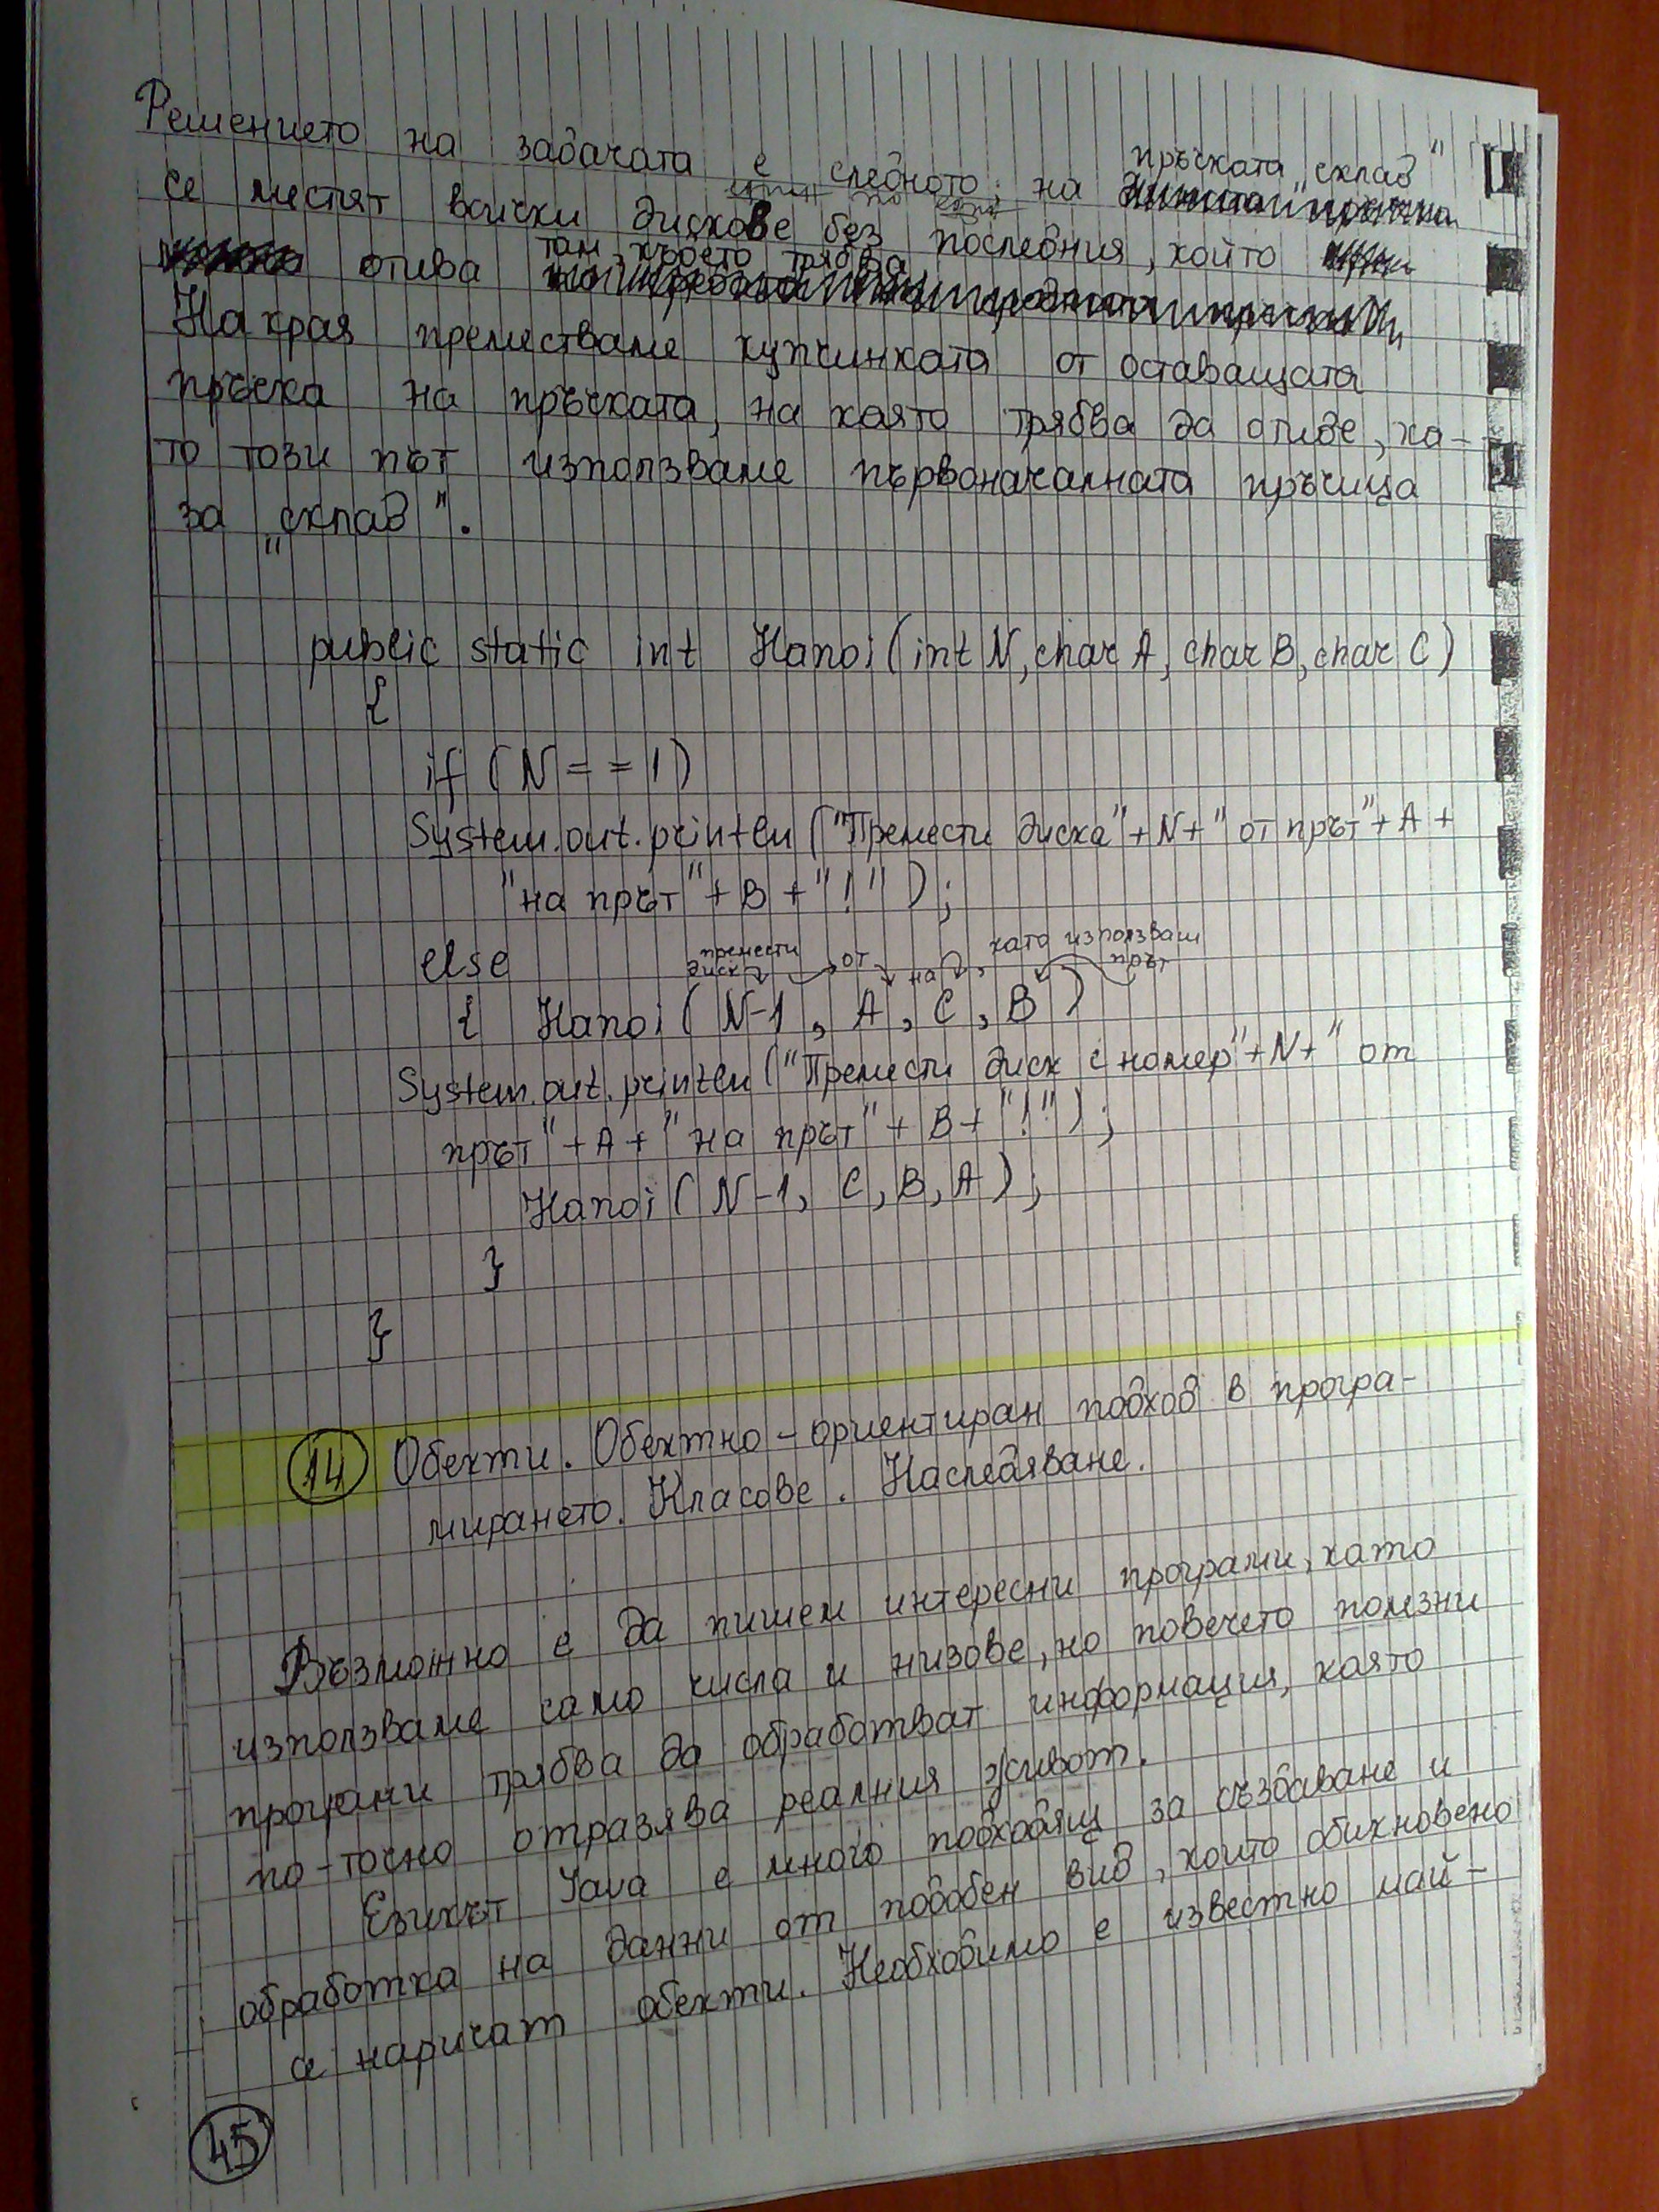 Решението на задачата е следното: на пръчката „склад"
се местят всички дискове без последния, който
отива там, където трябва
Накрая преместваме купчинката от оставащата
пръчка на пръчката, на която трябва да отиде, ка-
то този път използваме първоначалната пръчица
за „склад".
public static int Hanoi(int N, char A, char B, char C)
{
if (N == 1)
System.out.println("Премести диска"+N+" от прът"+A+
"на прът"+B+"!");
else
премести диск от на, като използваш прът
{ Hanoi(N-1, A, C, B)
System.out.println("Премести диск с номер"+N+" от
прът"+A+" на прът"+B+"!");
Hanoi(N-1, C, B, A);
}
}
14 Обекти. Обектно-ориентиран подход в програ-
мирането. Класове. Наследяване.
Възможно е да пишем интересни програми, като
използваме само числа и низове, но повечето полезни
програми трябва да обработват информация, която
по-точно отразява реалния живот.
Езикът Java е много подходящ за създаване и
обработка на данни от подобен вид, които обикновено
се наричат обекти. Необходимо е известно май-
45